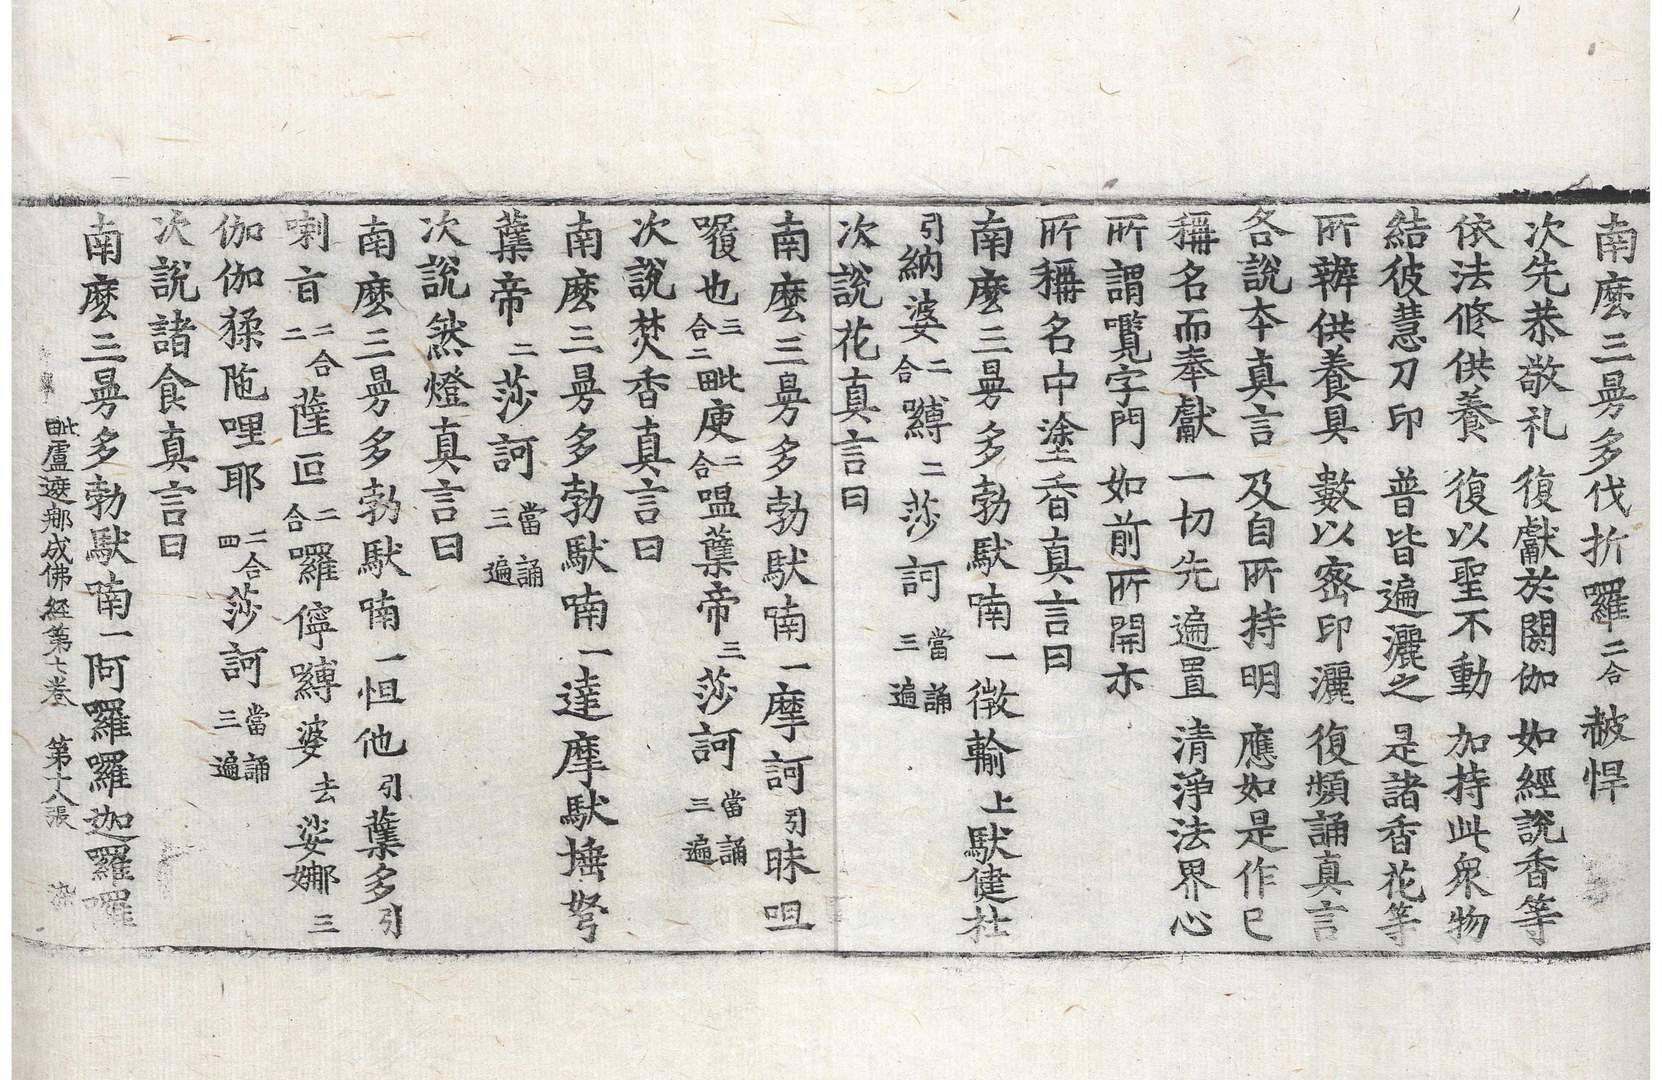 南麼三曼多伐折羅二合赧悍
次先恭敬礼　復獻於閼伽　如經說香等
依法修供養　復以聖不動　加持此衆物
結彼慧刀印　普皆遍灑之　是諸香花等
所辦供養具　數以密印灑　復頻誦真言
各說本真言　及自所持明　應如是作已
稱名而奉獻　一切先遍置　清淨法界心
所謂覽字門　如前所開示
所稱名中塗香真言曰
南麼三曼多勃馱喃一微輸上馱健杜
引納婆二合嚩二莎訶當誦三遍
次說花真言曰
南麼三曼多勃馱喃一摩訶引昧呾
囉也三合二毗庾二合嗢蘖帝三莎訶當誦三遍
次說焚香真言曰
南麼三曼多勃馱喃一達摩馱埵弩
蘖帝二莎訶當誦三遍
次說然燈真言曰
南麼三曼多勃馱喃一怛他引蘖多引
喇旨二合二薩叵二合囉儜嚩婆去娑娜三
伽伽猱陁哩耶二合四莎訶當誦三遍
次說諸食真言曰
南麼三曼多勃馱喃一阿囉囉迦羅囉
毗盧遮那成佛經第七卷　第十八張　染